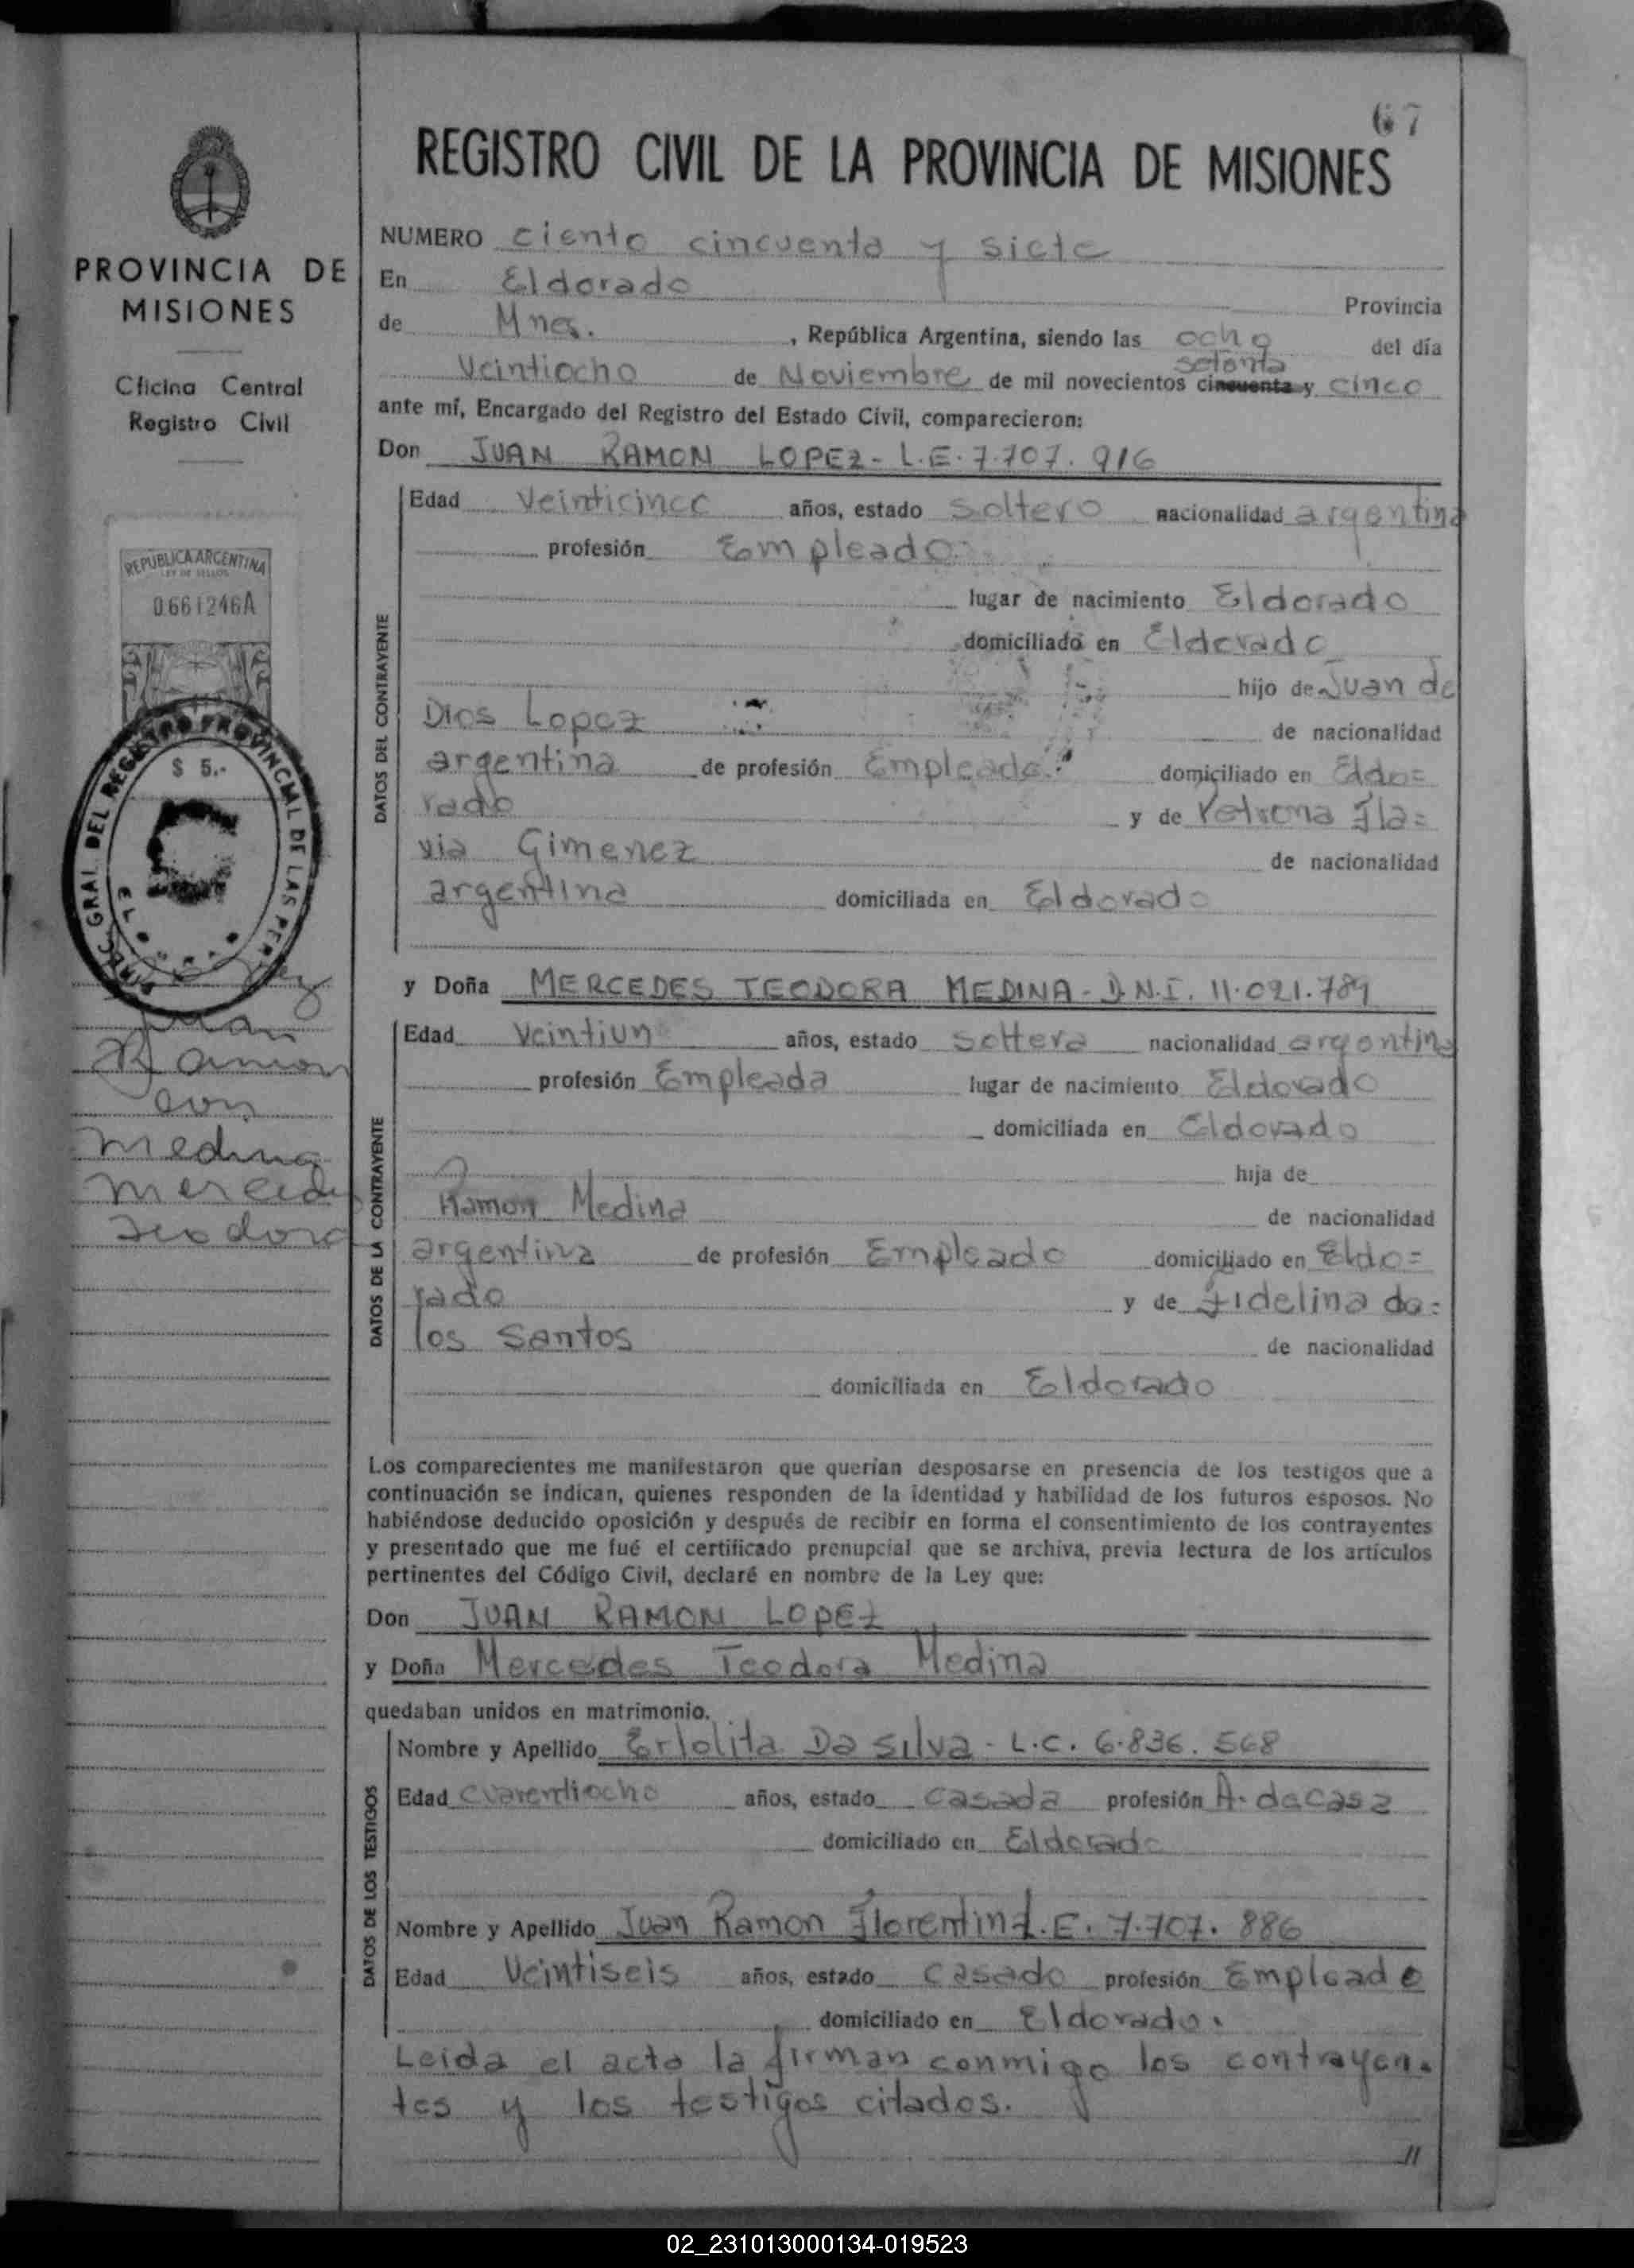 67
REGISTRO CIVIL DE LA PROVINCIA DE MISIONES
PROVINCIA DE
MISIONES
Oficina Central
Registro Civil
REPUBLICA ARGENTINA
LEY DE SELLOS
0661246A
$ 5.-
DIREC. GRAL. DEL REGISTRO PROVINCIAL DE LAS PER
Lopez
Juan
Ramon
con
Medina
Mercedes
Teodora
NUMERO ciento cincuenta y siete
En Eldorado Provincia
de Mnes. , República Argentina, siendo las ocho del día
setenta
Veintiocho de Noviembre de mil novecientos cincuenta y cinco
ante mí, Encargado del Registro del Estado Civil, comparecieron:
Don JUAN RAMON LOPEZ - L.E. 7.707.916
DATOS DEL CONTRAYENTE
Edad Veinticinco años, estado soltero nacionalidad argentina
profesión Empleado
lugar de nacimiento Eldorado
domiciliado en Eldorado
hijo de Juan de
Dios Lopez de nacionalidad
argentina de profesión Empleado domiciliado en Eldo=
rado y de Petrona Fla=
via Gimenez de nacionalidad
argentina domiciliada en Eldorado
y Doña MERCEDES TEODORA MEDINA - D.N.I. 11.021.789
DATOS DE LA CONTRAYENTE
Edad Veintiun años, estado soltera nacionalidad argentina
profesión Empleada lugar de nacimiento Eldorado
domiciliada en Eldorado
hija de
Ramon Medina de nacionalidad
argentina de profesión Empleado domiciliado en Eldo=
rado y de Fidelina do=
los Santos de nacionalidad
domiciliada en Eldorado
Los comparecientes me manifestaron que querían desposarse en presencia de los testigos que a
continuación se indican, quienes responden de la identidad y habilidad de los futuros esposos. No
habiéndose deducido oposición y después de recibir en forma el consentimiento de los contrayentes
y presentado que me fué el certificado prenupcial que se archiva, previa lectura de los artículos
pertinentes del Código Civil, declaré en nombre de la Ley que:
Don JUAN RAMON LOPEZ
y Doña Mercedes Teodora Medina
quedaban unidos en matrimonio.
DATOS DE LOS TESTIGOS
Nombre y Apellido Erlolita Da Silva - L.C. 6.836.568
Edad cuarentiocho años, estado casada profesión A. de casa
domiciliado en Eldorado
Nombre y Apellido Juan Ramon Florentin L.E. 7.707.886
Edad Veintiseis años, estado casado profesión Empleado
domiciliado en Eldorado.
Leida el acta la firman conmigo los contrayen.
tes y los testigos citados.
//
02_231013000134-019523